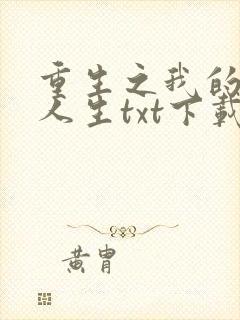 重生之我的
人生txt下载
黄胄